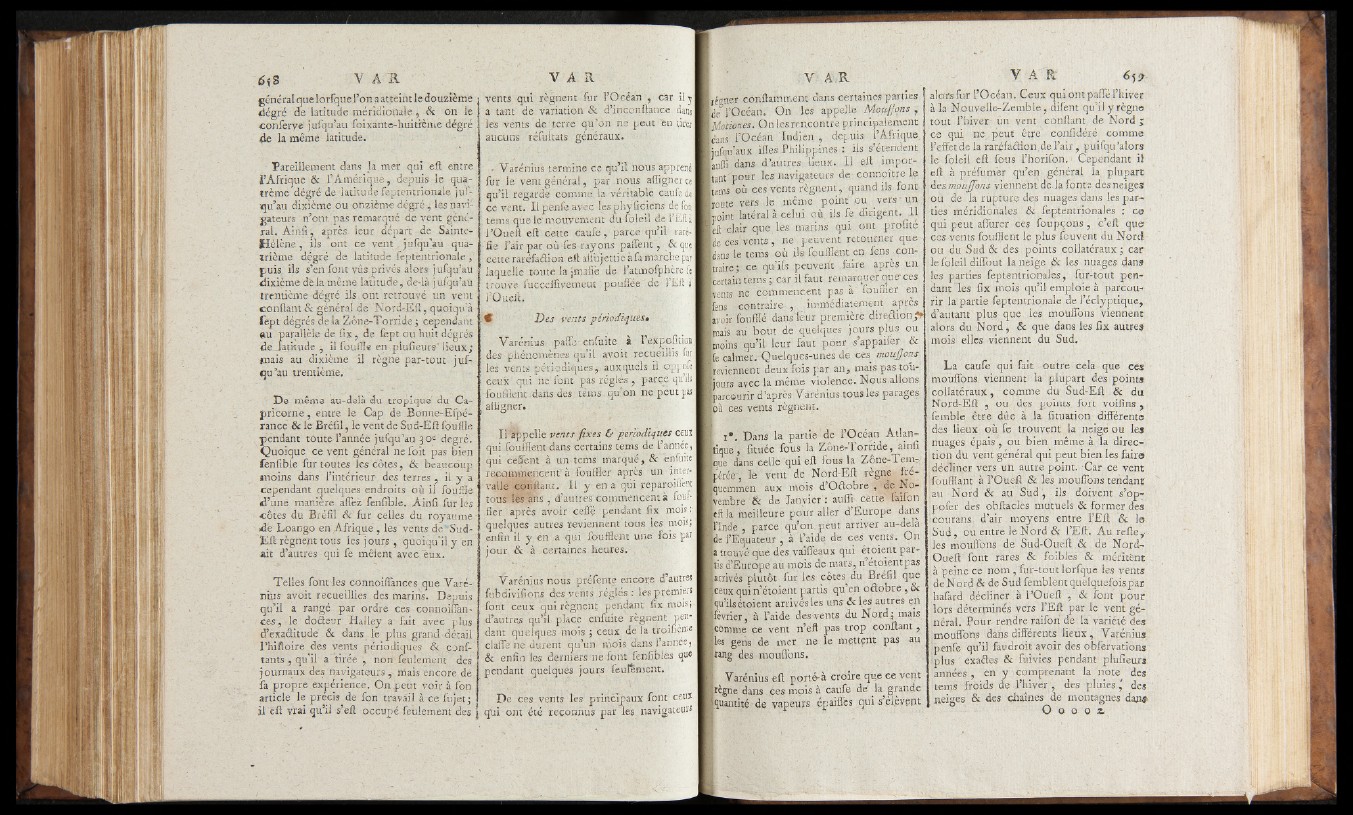 658 VAR
général que lorsque l'on a atteint le douzième
dégré de latitude méridionale, & on le
conserve jusqu'au soixante-huitième dégré
de la même latitude.
Pareillement dans la mer qui est entre
l'Afrique & l'Amérique, depuis le qua-
trième dégré de latitude septentrionale jus-
qu'au dixième ou onzième dégré, les navi-
gateurs n'ont pas remarqué de vent géné-
ral. Ainsi, après leur départ de Sainte-
Hélène, ils ont ce vent jusqu'au qua-
trième dégré de latitude septentrionale,
puis ils s'en sont vûs privés alors jusqu'au
dixième de la même latitude, de-là jusqu'au
trentième dégré ils ont retrouvé un vent
constant & général de Nord-Est, quoiqu'à
sept dégrés de la Zône-Torride ; cependant
au parallèle de six, de sept ou huit dégrés
de latitude, il souffle en plusieurs lieux ;
mais au dixième il règne par-tout jus-
qu'au trentième.
De même au-delà du tropique du Ca-
pricorne, entre le Cap de Bonne-Espé-
rance & le Brésil, le vent de Sud-Est souffle
pendant toute l'année jusqu'au 30e degré.
Quoique ce vent général ne soit pas bien
sensible sur toutes les côtes, & beaucoup
moins dans l'intérieur des terres, il y a
cependant quelques endroits où il souffle
d'une manière assez sensible. Ainsi sur les
côtes du Brésil & sur celles du royaume
de Loango en Afrique, les vents de Sud-
Est règnent tous les jours, quoiqu'il y en
ait d'autres qui se mêlent avec eux.
Telles sont les connoissances que Varé-
nius avoit recueillies des marins. Depuis
qu'il a rangé par ordre ces connoissan-
ces, le docteur Halley a fait avec plus
d'exactitude & dans le plus grand détail
l'histoire des vents périodiques & cons-
tants, qu'il a tirée, non seulement des
journaux des navigateurs, mais encore de
sa propre expérience. On peut voir à son
article le précis de son travail à ce sujet ;
il est vrai qu'il s'est occupé seulement des
VAR
vents qui règnent sur l'Océan, car il y
a tant de variation & d'inconstance dans
les vents de terre qu'on ne peut en tirer
aucuns résultats généraux.
Varénius termine ce qu'il nous apprend
sur le vent général, par nous assigner ce
qu'il regarde comme la véritable cause de
ce vent. Il pense avec les physiciens de son
tems que le mouvement du soleil de l'Est à
l'Ouest est cette cause, parce qu'il raré-
fie l'air par où ses rayons passent, & que
cette raréfaction est assujettie à sa marche par
laquelle toute la masse de l'atmosphère se
trouve successivement poussée de l'Est à
l'Ouest.
Des vents périodiques.
Varénius passe ensuite à l'exposition
des phénomènes qu'il avoit recueillis sur
les vents périodiques, auxquels il oppose
ceux qui ne sont pas réglés, parce qu'ils
soufflent dans des tems qu'on ne peut pas
assigner.
Il appelle vents fixes & périodiques ceux
qui soufflent dans certains tems de l'année,
qui cessent à un tems marqué, & ensuite
recommencent à souffler après un inter-
valle constant. Il y en a qui reparoissent
tous les ans, d'autres commencent à souf-
fler après avoir cessé pendant six mois :
quelques autres reviennent tous les mois ;
enfin il y en a qui soufflent une fois par
jour & à certaines heures.
Varénius nous présente encore d'autres
subdivisions des vents réglés : les premiers
sont ceux qui règnent pendant six mois ;
d'autres qu'il place ensuite règnent pen-
dant quelques mois ; ceux de la troisième
classe ne durent qu'un mois dans l'année,
& enfin les derniers ne sont sensibles que
pendant quelques jours seulement.
De ces vents les principaux sont ceux
qui ont été reconnus par les navigateurs
VAR
règner constamment dans certaines parties
de l'Océan. On les appelle Moussons,
Motiones. On les rencontre principalement
dans l'Océan Indien, depuis l'Afrique
jusqu'aux isles Philippines : ils s'étendent
aussi dans d'autres lieux. Il est impor-
tant pour les navigateurs de connoître le
tems où ces vents règnent, quand ils font
route vers le même point ou vers un
point latéral à celui où ils se dirigent. Il
est clair que les marins qui ont profité
de ces vents, ne peuvent retourner que
dans le tems où ils soufflent en sens con-
traire ; ce qu'ils peuvent faire après un
certain tems ; car il faut remarquer que ces
vents ne commencent pas à souffler en
sens contraire, immédiatement après
avoir soufflé dans leur première direction ;
mais au bout de quelques jours plus ou
moins qu'il leur faut pour s'appaiser &
se calmer. Quelques-unes de ces moussons
reviennent deux fois par an, mais pas tou-
jours avec la même violence. Nous allons
parcourir d'après Varénius tous les parages
où ces vents règnent.
1°. Dans la partie de l'Océan Atlan-
tique, située sous la Zône-Torride, ainsi
que dans celle qui est sous la Zône-Tem-
pérée, le vent de Nord-Est règne fré-
quemmen aux mois d'Octobre, de No-
vembre & de Janvier : aussi cette saison
est la meilleure pour aller d'Europe dans
l'Inde, parce qu'on peut arriver au-delà
de l'Equateur, à l'aide de ces vents. On
a trouvé que des vaisseaux qui étoient par-
tis d'Europe au mois de mars, n'étoient pas
arrivés plutôt sur les côtes du Brésil que
ceux qui n'étoient partis qu'en octobre, &
qu'ils étoient arrivés les uns & les autres en
février, à l'aide des vents du Nord ; mais
comme ce vent n'est pas trop constant,
les gens de mer ne le mettent pas au
rang des moussons.
Varénius est porté à croire que ce vent
règne dans ces mois à cause de la grande
quantité de vapeurs épaisses qui s'élèvent
VAR 659
alors sur l'Océan. Ceux qui ont passé l'hiver
à la Nouvelle-Zemble, disent qu'il y règne
tout l'hiver un vent constant de Nord ;
ce qui ne peut être considéré comme
l'effet de la raréfaction de l'air, puisqu'alors
le soleil est sous l'horison. Cependant il
est à présumer qu'en général la plupart
des moussons viennent de la fonte des neiges
ou de la rupture des nuages dans les par-
ties méridionales & septentrionales : ce
qui peut assurer ces soupçons, c'est que
ces vents soufflent le plus souvent du Nord
ou du Sud & des points collatéraux ; car
le soleil dissout la neige & les nuages dans
les parties septentrionales, sur-tout pen-
dant les six mois qu'il emploie à parcou-
rir la partie septentrionale de l'écliptique,
d'autant plus que les moussons viennent
alors du Nord, & que dans les six autres
mois elles viennent du Sud.
La cause qui fait outre cela que ces
moussons viennent la plupart des points
collatéraux, comme du Sud-Est & du
Nord-Est, ou des points fort voisins,
semble être dûe à la situation différente
des lieux où se trouvent la neige ou les
nuages épais, ou bien même à la direc-
tion du vent général qui peut bien les faire
décliner vers un autre point. Car ce vent
soufflant à l'Ouest & les moussons tendant
au Nord & au Sud, ils doivent s'op-
poser des obstacles mutuels & former des
courans d'air moyens entre l'Est & le
Sud, ou entre le Nord & l'Est. Au reste,
les moussons de Sud-Ouest & de Nord-
Ouest sont rares & foibles & méritent
à peine ce nom, sur-tout lorsque les vents
de Nord & de Sud semblent quelquefois par
hasard décliner à l'Ouest, & sont pour
lors déterminés vers l'Est par le vent gé-
néral. Pour rendre raison de la variété des
moussons dans différents lieux, Varénius
pense qu'il faudroit avoir des observations
plus exactes & suivies pendant plusieurs
années, en y comprenant la note des
tems froids de l'hiver, des pluies, des
neiges & des chaînes de montagnes dans
Oooo 2